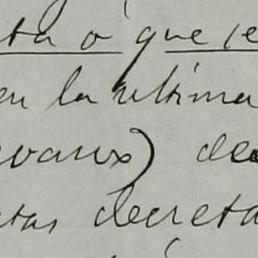 ta o que se
en la ultima
evaux) de
tas decreta